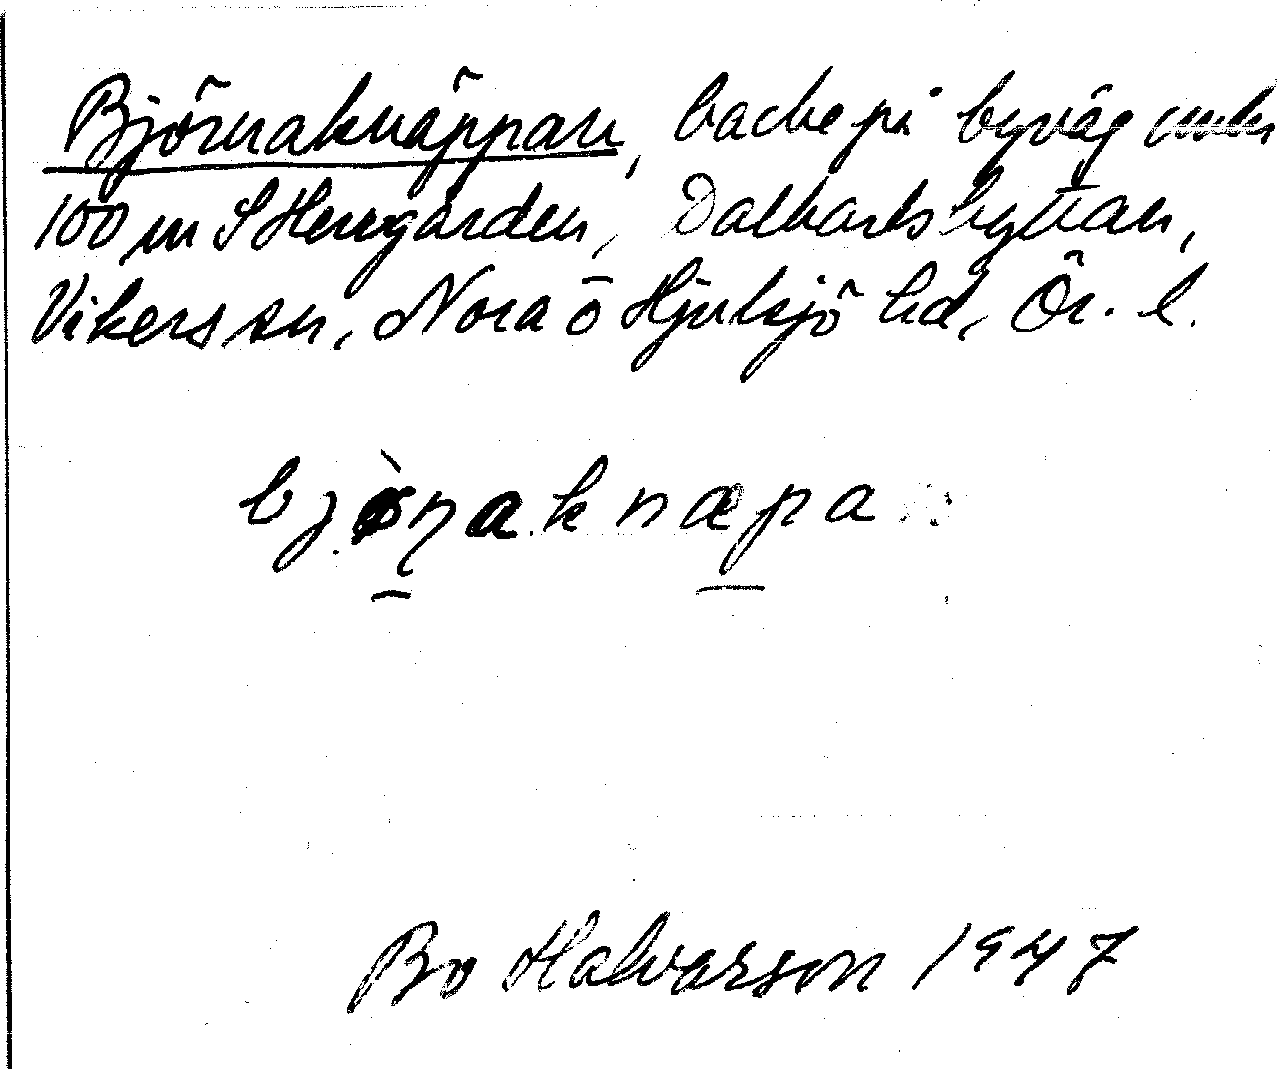 Björnaknäppan, backe på byväg
100 m S Herrgården, Dalkarlshyttan,
Vikers sn, Nora o Hjulsjö hd, Ör. l.
bjø̀ṇaknæpa
Bo Halvarson 1947